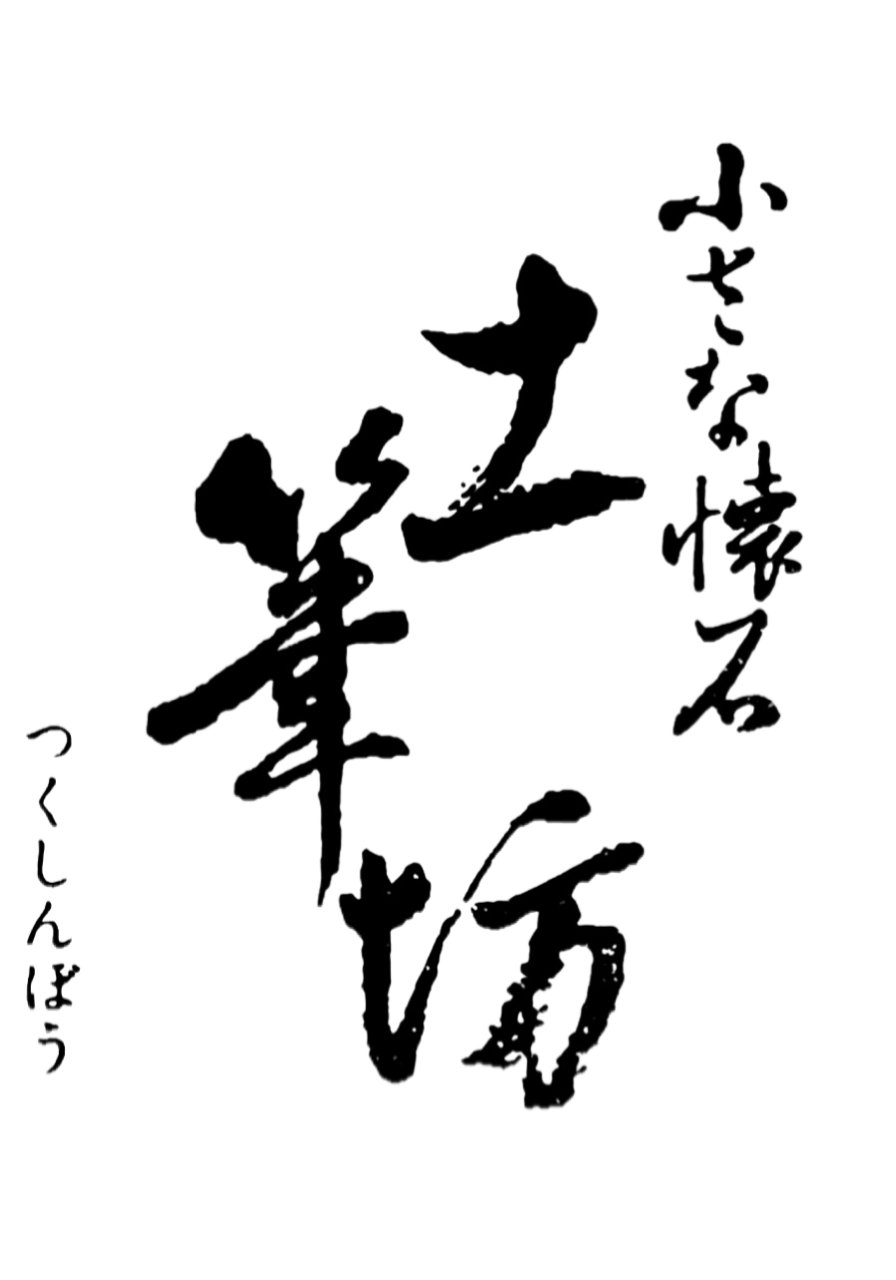 小さな懐石
土筆坊
つくしんぼう